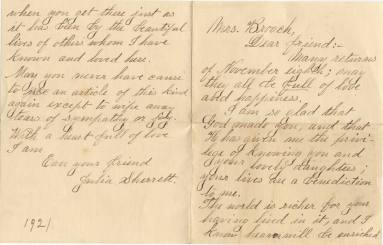 Mrs. Brooch,
Dear friend:-
Many returns
of November eighth; may
they all be full of love
and happiness.
I am so glad that
God made you, and that
He has given me the privi-
lege of knowing you and
your lovely daughters;
your lives are a benediction
to me.
The world is richer for your
having lived in it, and I
know heaven will be enriched
when you get there just as
it has been by the beautiful
lives of others whom I have
known and loved here.
May you never have cause
to use an article of this kind
again except to wipe away
tears of sympathy or joy.
With a heart full of love
I am
Ever your friend
Julia Sherrett.
1921